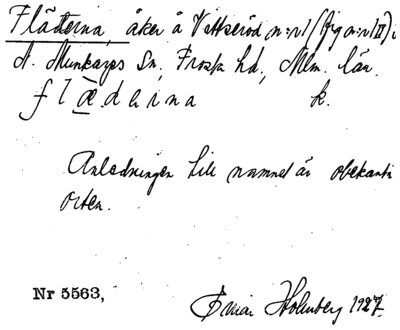 Fläderna, åker å Vittseröd n:r 1 (fig n:r 1 II) i
N. Munkarps Sn, Frosta hd, Mlm. län.
f l æ d e r n a k.
Anledningen till namnet är obekant i
orten.
Nr 5563,
Einar Holmberg 1927.